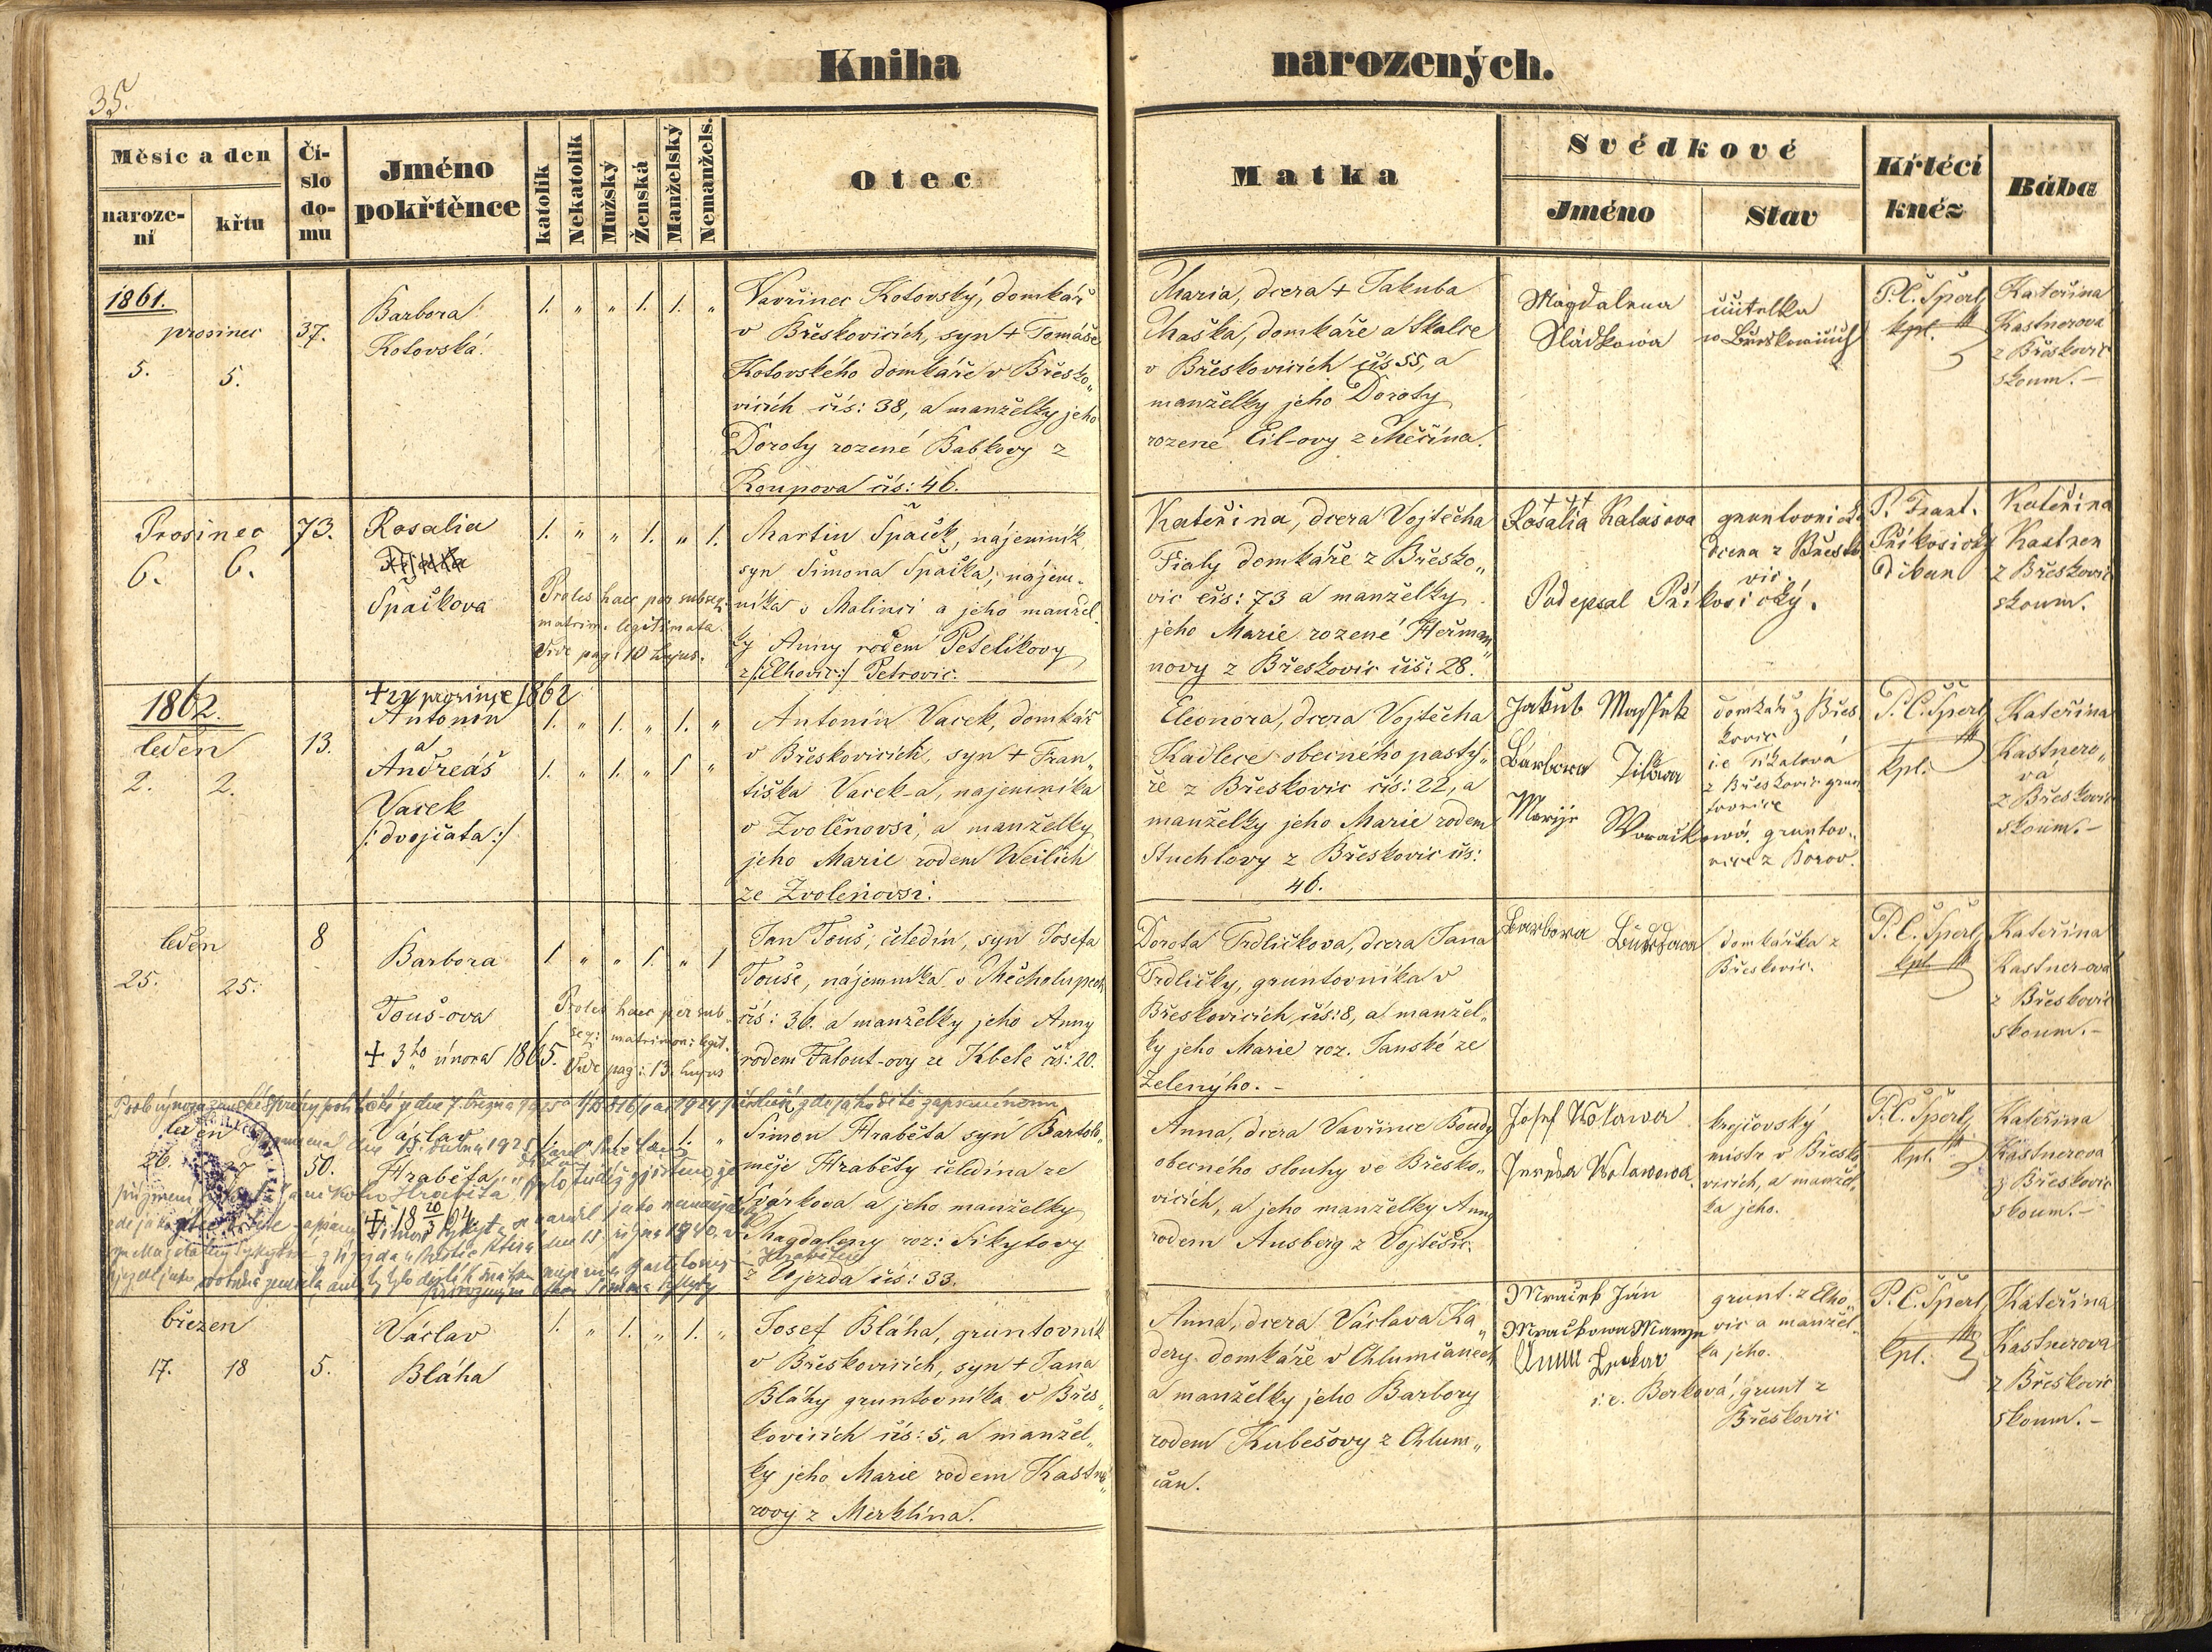 Kniha narozených.
35.
Měsíc a den
naroze-
ní
křtu
Čí-
slo
do-
mu
Jméno
pokřtěnce
katolík
Nekatolík
Mužský
Ženská
Manželský
Nemanžels.
Otec
Matka
Svědkové
Jméno
Stav
Křtěcí
kněz
Bába
1861.
prosinec
5. 5.
37.
Barbora
Kotovská.
1. " " 1. 1. "
Vavřinec Kotovský, domkář
v Břeskovicích, syn + Tomáše
Kotovského domkáře v Břesko„
vicích čís: 38, a manželky jeho
Doroty rozené Babkovy z
Roupova čís: 46.
Maria, dcera + Jakuba
Maška, domkáře a tkalce
v Břeskovicích čís 55, a
manželky jeho Doroty
rozené Cil-ovy z Měčína.
Magdalena
Sládkowa
učitelka
w Břeskowicích
P. Č. Šperl,
kpl.
Kateřina
Kastnerova
z Břeskovic
zkoum. –
Prosinec
6. 6.
73.
Rosalia
Špačkova
1. " " 1. " 1.
Proles haec per subseq.
matrim. legitimata.
Vide pag: 10 hujus.
Martin Špaček, nájemník
syn Šimona Špačka, nájem-
níka v Malinci a jeho manžel-
ky Anny rodem Petelíkovy
z /:Elhovic:/ Petrovic.
Kateřina, dcera Vojtěcha
Fialy domkáře z Břesko„
vic čís: 73 a manželky
jeho Marie rozené Heřman„
novy z Břeskovic čís: 28.
+++
Rosalia Kalašova
Podepsal Příkosický.
gruntovnická
dcera z Břesko
vic.
P. Frant.
Příkosický
Děkan
Kateřina
Kastner
z Břeskovic
zkoum.
1862.
leden
2. 2.
13.
+ 24 prosince 1862
Antonín
a
Andreáš
Vacek
/: dvojčata :/
1. " 1. " 1. "
1. " 1. " 1 "
Antonín Vacek, domkář
v Břeskovicích, syn + Fran„
tiška Vacek-a, najemníka
v Zvolěnovsi, a manželky
jeho Marie rodem Weilich
ze Zvoleňovsi.
Eleonora, dcera Vojtěcha
Kadlece obecného pastý„
ře z Břeskovic čís: 22, a
manželky jeho Marie rodem
Stuchlovy z Břeskovic čís:
46.
Jakub Maſſek
Barbora
Marije Woračkowá
domkář z Břes
kovic
z Břeskovic grun
tovnice
gruntov„
nice z Borov.
P. Č. Šperl,
kpl.
Kateřina
Kastnero„
vá
z Břeskovic
zkoum. –
leden
25. 25.
8
Barbora
Touš-ova
+ 3ho února 1865.
1 " " 1. " 1
Proles haec per sub
seq: matrimon: legit.
Vide pag: 13. hujus
Jan Touš, čeledín, syn Josefa
Touše, nájemníka v Měcholupech
čís: 36. a manželky jeho Anny
rodem Falout-ovy ze Kbele čís: 20.
Dorota Trdličkova, dcera Jana
Trdličky, gruntovníka v
Břeskovicích, čís: 8, a manžel„
ky jeho Marie roz. Janské ze
Zeleného. –
Barbora
domkářka z
Břeskovic.
P. Č. Šperl,
kpl.
Kateřina
Kastner-ová
z Břeskovic
zkoum. –
leden
26.
50.
Václav
Hraběta
Šimon Hraběta syn Bartolo„
měje Hraběty čeledína ze
Svárkova a jeho manželky
Magdaleny roz: Sikytovy
z Újezda čís: 33.
Anna, dcera Vavřince Boudy
obecného slouhy ve Břesko„
vicích, a jeho manželky Anny
rodem Ausberg z Vojtěšic.
Josef Wolawa
Terezia Wolawowa.
krejčovský
mistr v Břesko
vicích, a manžel„
ka jeho.
P. Č. Šperl,
kpl.
Kateřina
Kastnerova
z Břeskovic
zkoum. –
březen
17. 18
5.
Václav
Bláha
1. " 1. " 1. "
Josef Bláha, gruntovník
v Břeskovicích, syn + Jana
Bláhy gruntovníka v Břes„
kovicích čís: 5, a manžel„
ky jeho Marie rodem Kastne„
rovy z Merklína.
Anna, dcera Václava Ka„
dery domkáře v Chlumčanech
a manželky jeho Barbory
rodem Kubešovy z Chlum„
čan.
Mraček Ján
Mračkowa Maryje
Anna
i. e. Berková, grunt z
Břeskovic
grunt. z Elho„
vic a manžel„
ka jeho.
P. Č. Šperl,
kpl.
Kateřina
Kastnerova
z Břeskovic
zkoum. –